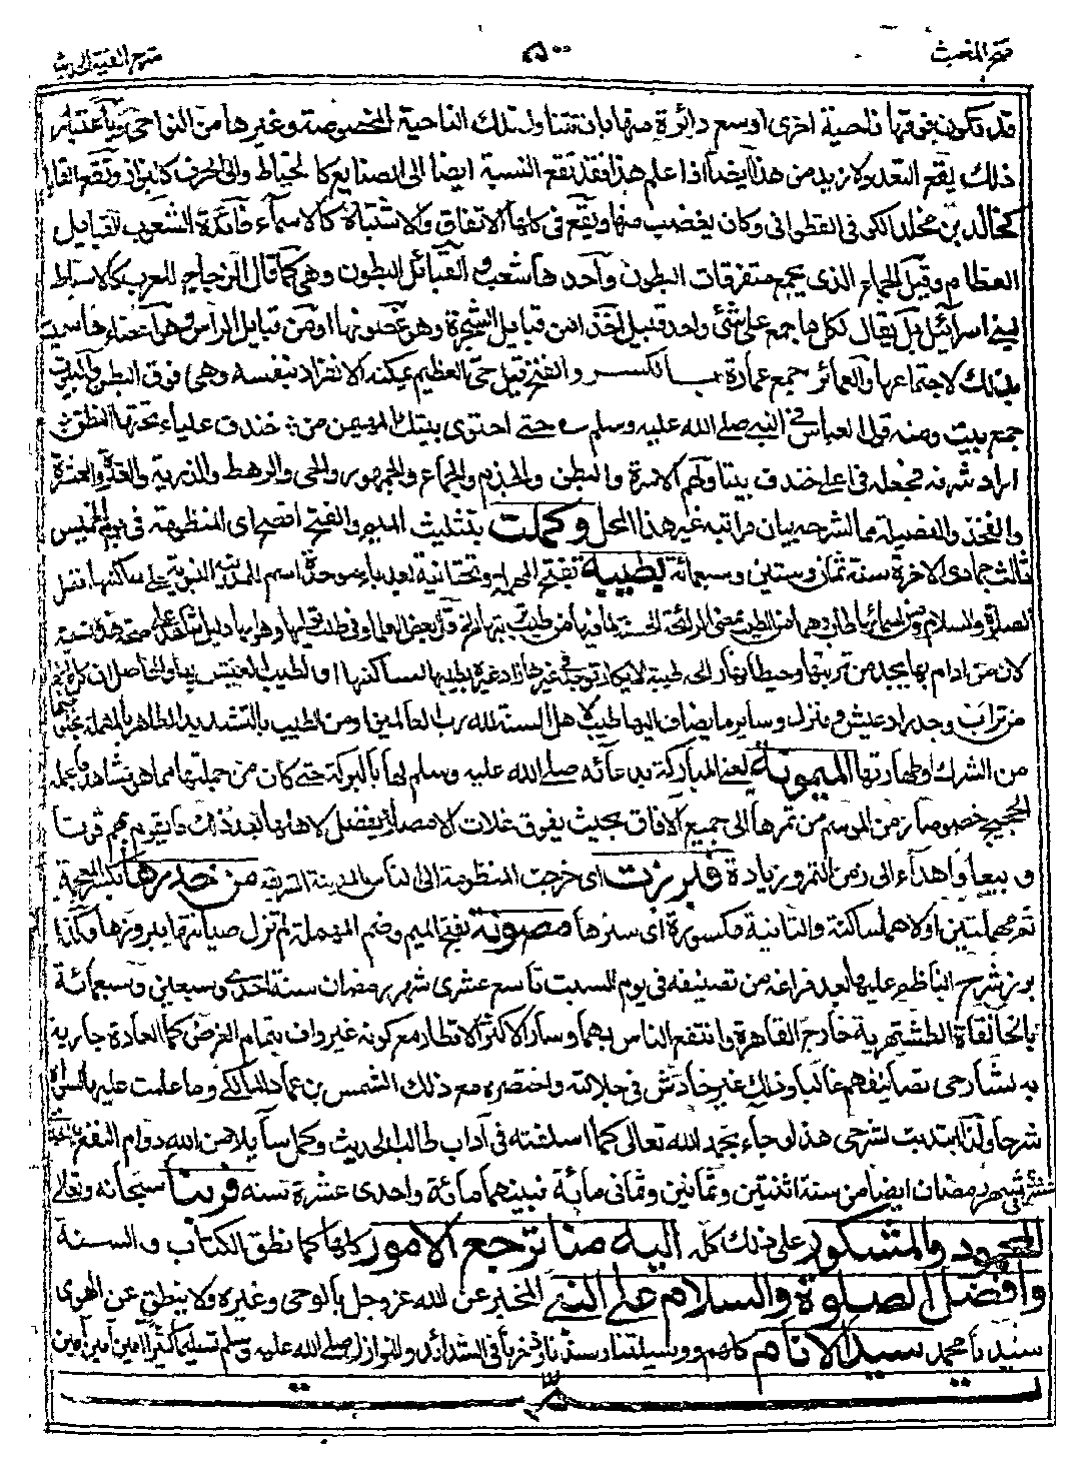 فتح المغيث
٥٠٠
شرح الفية الحديث
قد تكون فوقها ناحية اخرى اوسع دائرة منها بان تتناول تلك الناحية المخصوصة وغيرها من النواحي وباعتبار
ذلك يقع التعدد ولا يزيد من هذا ايضا اذا علم هذا فقد تقع النسبة ايضا الى الصنايع كالخياط والى الحرف كالبزاز وتقع القابا
كخالد بن مخلد الكوفي القطواني وكان يغضب منها ويقع في كلها الاتفاق والاشتباه كالاسماء فائدة الشعوب القبايل
العظام وقيل الجماع الذي يجمع متفرقات البطون واحدها شعب والقبائل البطون وهي كما قال الزجاج للعرب كالاسباط
لبني اسرائيل بل يقال لكل ما جمع على شئ واحد قبيل اخذا من قبايل الشجرة وهو غصونها او من قبايل الراس وهو اعضاءها سميت
بذلك لاجتماعها والعمائر جمع عمارة بالكسر والفتح قيل حي العظيم يمكنه الانفراد بنفسه وهي فوق البطن والبيوت
جمع بيت ومنه قول العباس في النبي صلى الله عليه وسلم حتى احتوى بيتك المهيمن من خندف علياء تحتها النطق
اراد شرفه فجعله في اعلى خندف بيتا ولهم الاسرة والبطن والجذم والجماع والجمهور والحي والرهط والذرية والعترة والعشيرة
والفخذ والفصيلة مما لشرحه وبيان مراتبه غير هذا المحل وكملت بتثليث الميم والفتح افصح اى المنظومة في يوم الخميس
ثالث جمادى الاخرة سنة ثمان وستين وسبعمائة بطيبة بفتح المهملة وتحتانية بعد باء موحدة اسم المدينة النبوية على ساكنها افضل
الصلوة والسلام
من تراب وجدر ادعيش في منزل وسائر ما يضاف اليها طيب لاهل السنة لله رب العالمين او من الطيب بالتشديد الطاهر بالمهملة
من الشرك او طهارتها الميمونة يعنى المباركة بدعائه صلى الله عليه وسلم لها بالبركة حتى كان من جملتها مما هو نشاهده بحمله
الحجيج خصوصا زمن الموسم من تمرها الى جميع الآفاق بحيث يفوق غلات الامصار ويفضل لاهلها بعد ذلك ما يقوم بهم قوتا
وبيعا واهداء الى زمن التمر وزيادة فبرزت اى خرجت المنظومة الى الناس بالمدينة الشريفة من خدرها بكسر المعجمة
ثم مهملتين اولاهما ساكنة والثانية مكسورة اى سترها مصونة بفتح الميم وضم المهملة لم تزل صيانتها ببروزها وكذا
برز شرح الناظم عليها بعد فراغه من تصنيفه في يوم السبت تاسع عشرى شهر رمضان سنة احدى وسبعين وسبعمائة
بالخانقاة الطشتمرية خارج القاهرة وانتفع الناس بهما وسارا لاكثر الاقطار مع كونه غير واف بتمام الغرض كما العادة جارية
به لشارحي تصانيفهم غالبا وذلك غير خادش في جلالته واختصره مع ذلك الشمس بن عمار المالكي وما علمت عليه بالاستقراء
شرحا ولذا ابتدبت لشرحي هذا لو جاء بحمد الله تعالى كما اسلفته في آداب طالب الحديث وكمل سائلا من الله دوام النفع به في
شهر رمضان ايضا من سنة اثنتين وثمانين وثماني مائة فبينهما مائة واحدى عشرة سنة فربنا سبحانه وتعالى
المحمود والمشكور على ذلك كله اليه منا ترجع الامور كلها كما نطق الكتاب والسنة
وافضل الصلوة والسلام على النبى المخبر عن الله عز وجل بالوحى وغيره ولا ينطق عن الهوى
سيدنا محمد سيد الانام كلهم ووسيلتنا وسندنا وذخرنا في الشدائد والنوازل صلى الله عليه وسلم تسليما كثيرا آمين آمين آمين